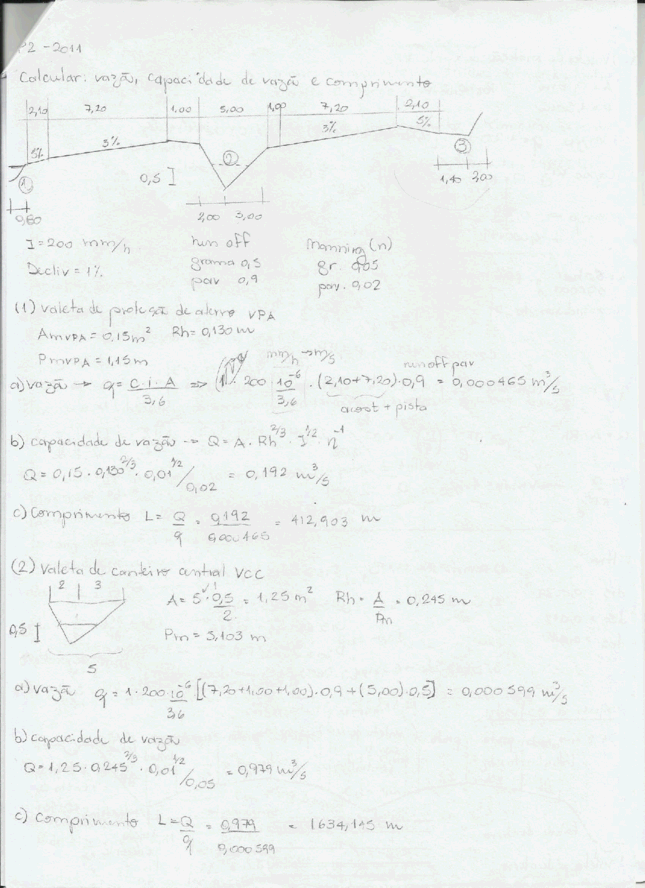 P2 - 2011
Calcular: vazão, capacidade de vazão e comprimento
2,10 7,20 1,00 5,00 1,00 7,20 2,10
5% 3% 3% 5%
1 2 3
0,5
0,60 2,00 3,00 1,40 2,00
I = 200 mm/h run off Manning (n)
Decliv = 1% grama 0,5 gr. 0,05
pav 0,9 pav. 0,02
(1) Valeta de proteção de aterro VPA
Am VPA = 0,15 m² Rh = 0,130 m
Pm VPA = 1,15 m
mm/h → m/s run off pav
a) vazão → q = C.i.A / 3,6 ⇒ 1 . 200 . 10⁻⁶ / 3,6 . (2,10+7,20) . 0,9 = 0,000465 m³/s
acost + pista
b) capacidade de vazão → Q = A . Rh^2/3 . I^1/2 . n⁻¹
Q = 0,15 . 0,130^2/3 . 0,01^1/2 / 0,02 = 0,192 m³/s
c) Comprimento L = Q / q = 0,192 / 0,000465 = 412,903 m
(2) Valeta de canteiro central VCC
2 3 A = 5 . 0,5 / 2 = 1,25 m² Rh = A / Pm = 0,245 m
0,5 Pm = 5,103 m
5
a) vazão q = 1 . 200 10⁻⁶ / 3,6 [(7,20+1,00+1,00) . 0,9 + (5,00) . 0,5] = 0,000599 m³/s
b) capacidade de vazão
Q = 1,25 . 0,245^2/3 . 0,01^1/2 / 0,05 = 0,979 m³/s
c) Comprimento L = Q / q = 0,979 / 0,000599 = 1634,145 m